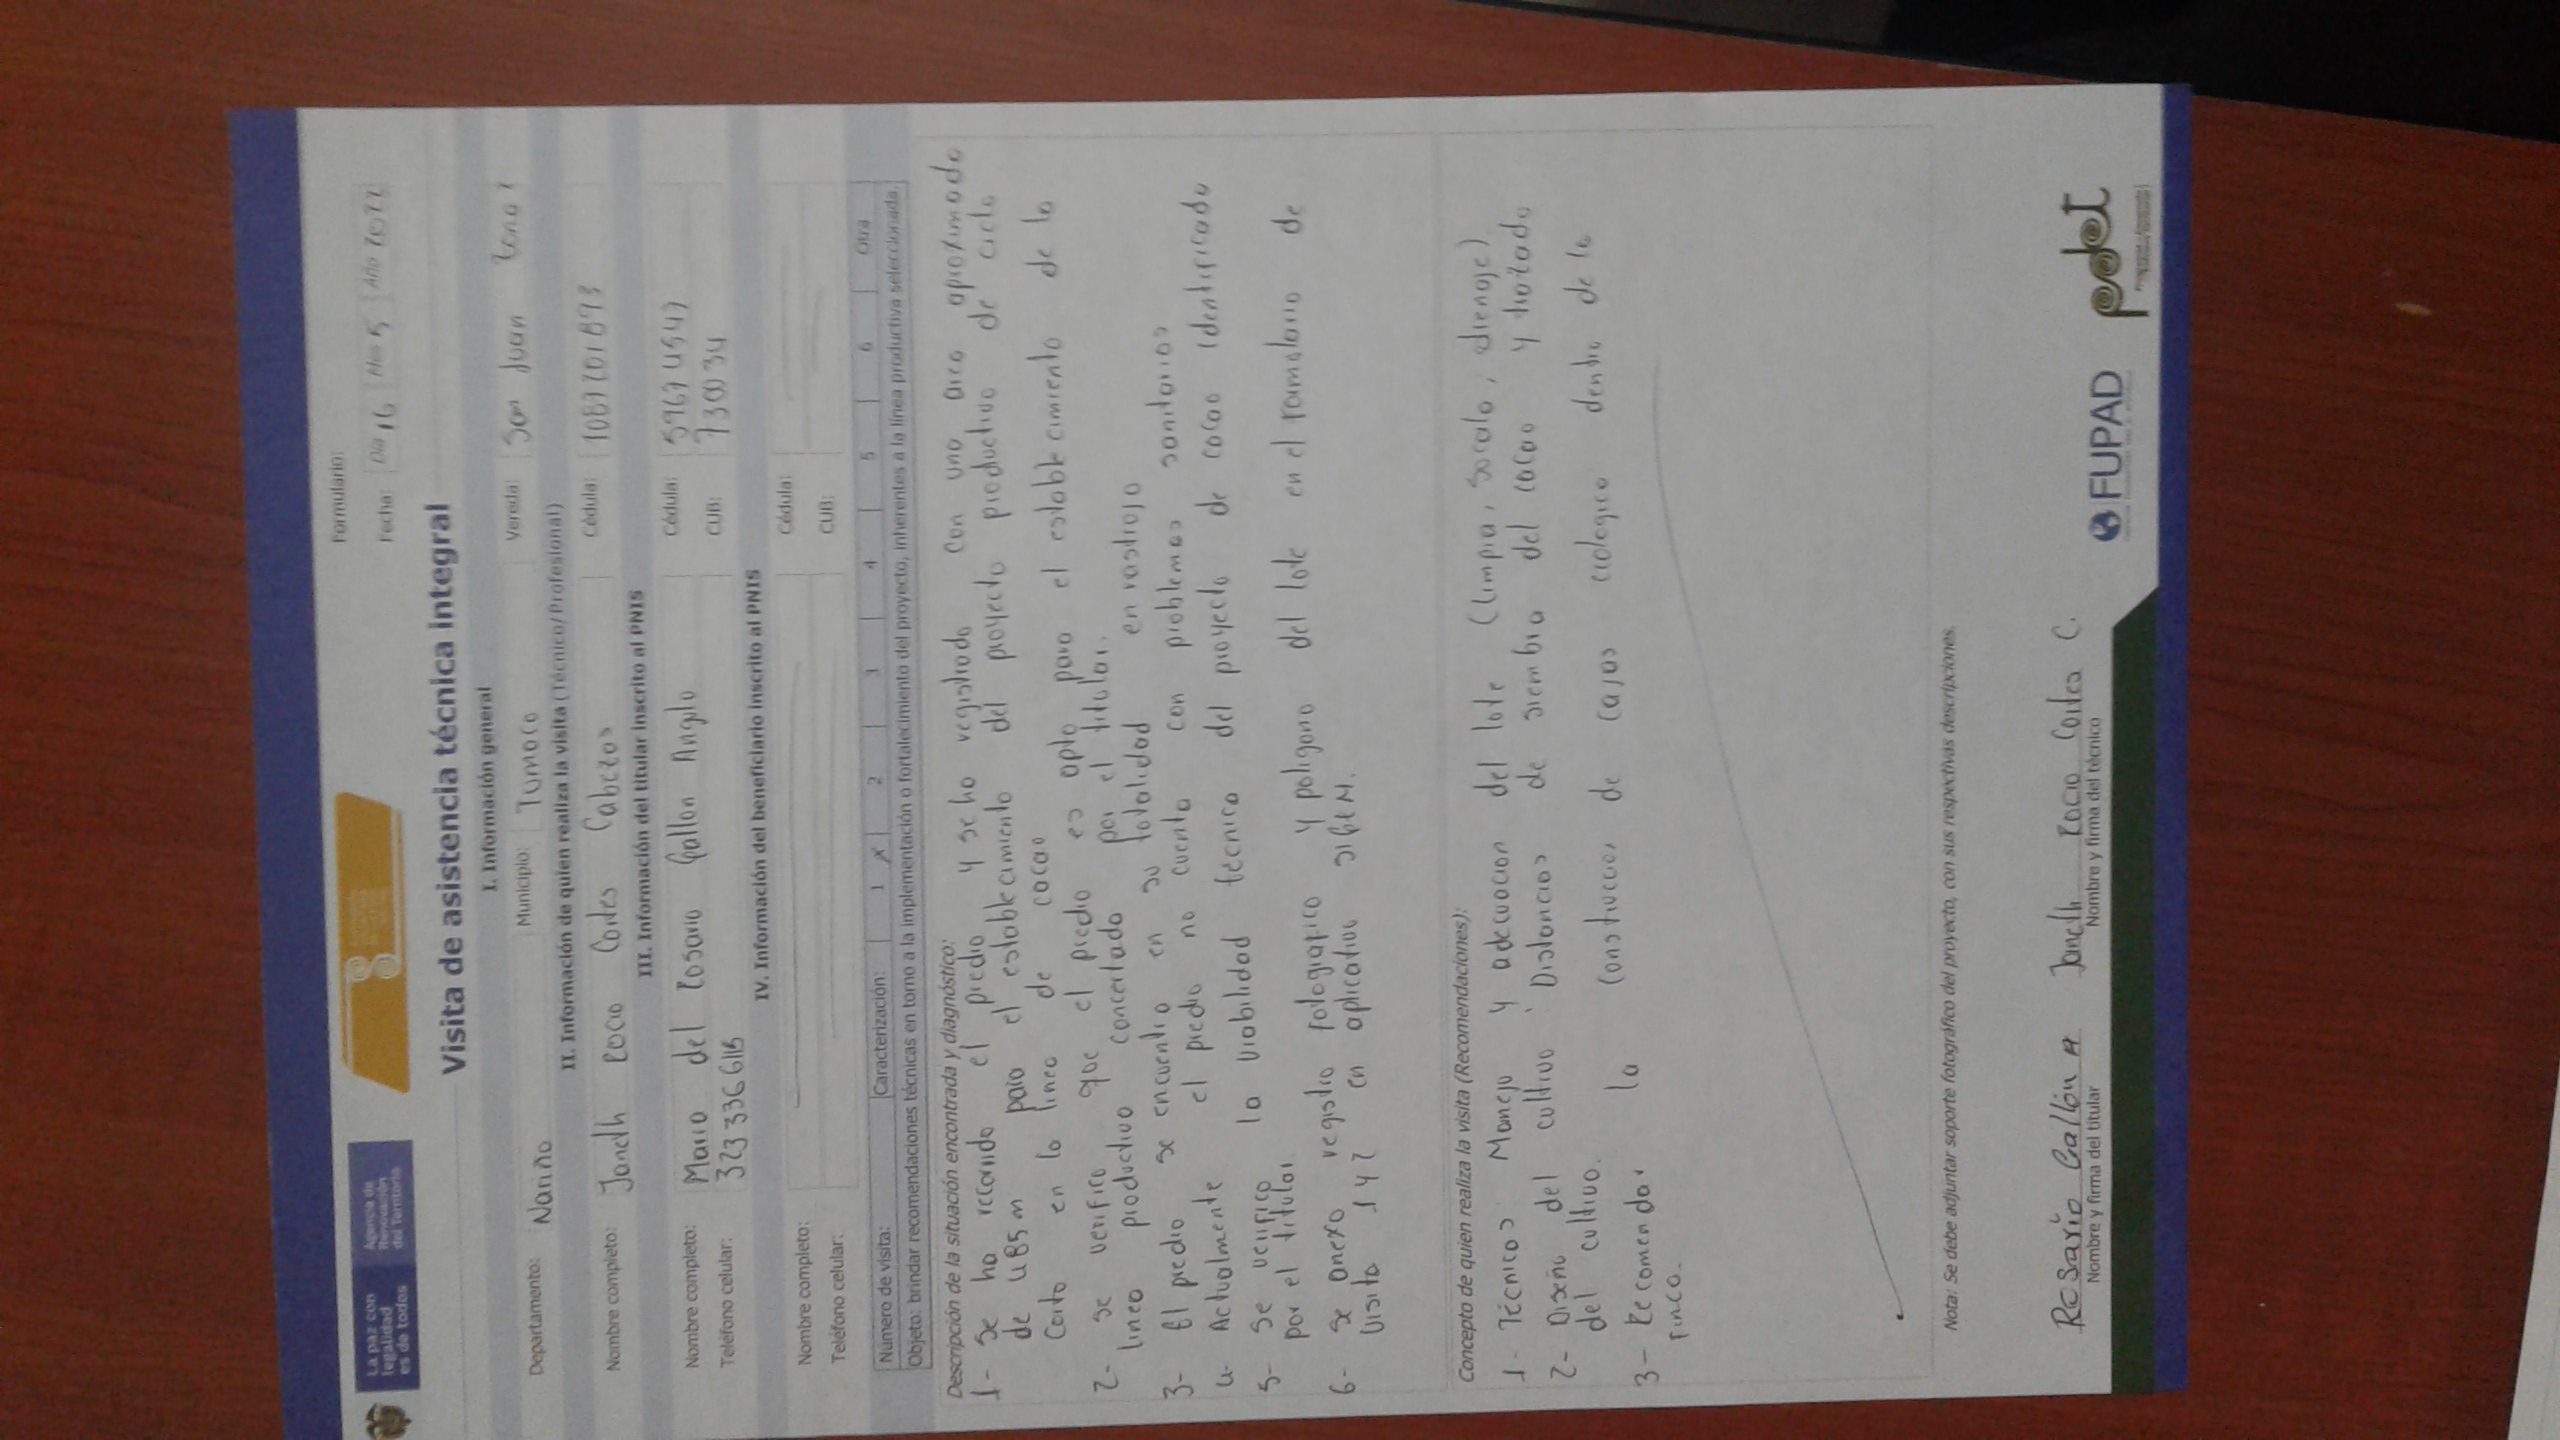 La paz con
legalidad
es de todos
Agencia de
Renovación
del Territorio
Formulario:
Fecha: Día 16 Mes 5 Año 2022
Visita de asistencia técnica integral
I. Información general
Departamento: Nariño Municipio: Tumaco Vereda: San Juan
II. Información de quien realiza la visita (Técnico/Profesional)
Nombre completo: Janeth Rocio Cortes Cabezas Cédula: 1087201873
III. Información del titular inscrito al PNIS
Nombre completo: Maria del Rosario Gallon Angulo Cédula: 59674547
Teléfono celular: 323 336 6116 CUB: 730034
IV. Información del beneficiario inscrito al PNIS
Nombre completo: Cédula:
Teléfono celular: CUB:
Número de visita: Caracterización: 1 X 2 3 4 5 6 Otra
Objeto: brindar recomendaciones técnicas en torno a la implementación o fortalecimiento del proyecto, inherentes a la línea productiva seleccionada.
Descripción de la situación encontrada y diagnóstico:
1- Se ha recorrido el predio y se ha registrado con una area aproximada
de 485 m para el establecimiento del proyecto productivo de ciclo
Corto en la linea de cacao
2- se verifico que el predio es apto para el establecimiento de la
linea productiva concertada por el titular.
3- El predio se encuentra en su totalidad en rastrojo
4- Actualmente el predio no cuenta con problemas sanitarios
5- Se verifico la viabilidad tecnica del proyecto de cacao identificado
por el titular
6- se anexo registro fotografico y poligono del lote en el formulario de
Visita 1 y 2 en aplicativo SIGEM.
Concepto de quien realiza la visita (Recomendaciones):
1- Técnicos: Manejo y adecuacion del lote (limpia, socala, drenaje)
2- Diseño del cultivo: Distancias de siembra del cacao y trazado
del cultivo.
3- Recomendar la Construccion de cajas ecologica dentro de la
finca.
Nota: Se debe adjuntar soporte fotográfico del proyecto, con sus respectivas descripciones.
Rosario Gallón A Janeth Rocio Cortes C.
Nombre y firma del titular Nombre y firma del técnico
FUPAD
pdet